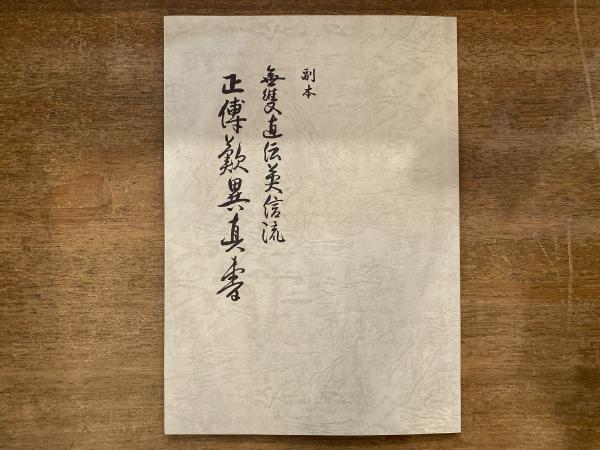 副本
無雙直伝英信流
正傳歎異真書